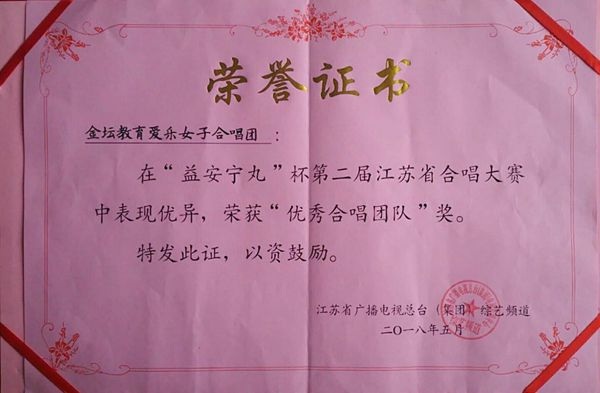 荣誉证书
金坛教育爱乐女子合唱团：
在“益安宁丸”杯第二届江苏省合唱大赛
中表现优异，荣获“优秀合唱团队”奖。
特发此证，以资鼓励。
江苏省广播电视总台（集团）综艺频道
二〇一八年五月